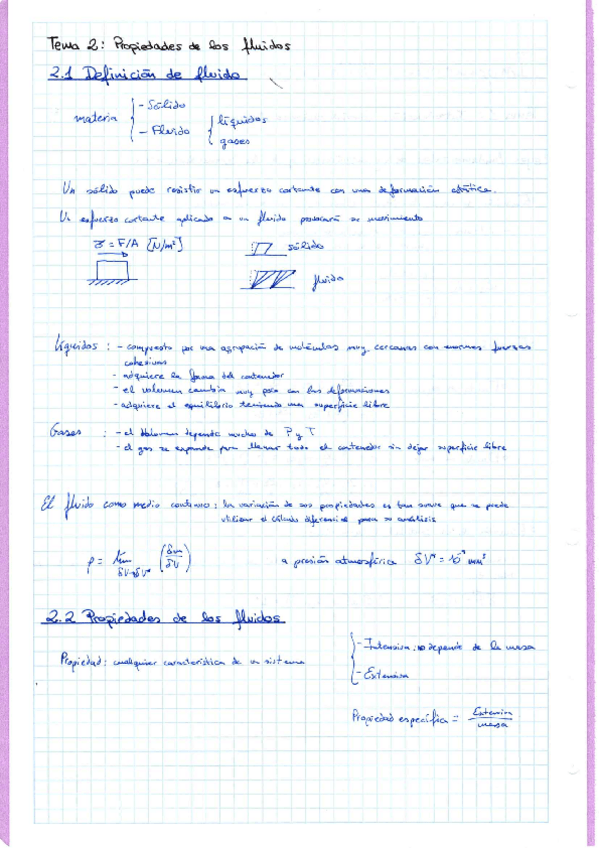 Tema 2: Propiedades de los fluidos
2.1 Definición de fluido
materia
- Sólido
- Fluido
líquidos
gases
Un sólido puede resistir un esfuerzo cortante con una deformación estática.
Un esfuerzo cortante aplicado a un fluido provocará su movimiento
σ = F/A [N/m²]
sólido
fluido
Líquidos : - compuesto por una agrupación de moléculas muy cercanas con enormes fuerzas
cohesivas
- adquiere la forma del contenedor
- el volumen cambia muy poco con las deformaciones
- adquiere el equilibrio teniendo una superficie libre
Gases : - el volumen depende mucho de P y T
- el gas se expande para llenar todo el contenedor sin dejar superficie libre
El fluido como medio continuo: la variación de sus propiedades es tan suave que se puede
utilizar el cálculo diferencial para su análisis
ρ = lim δV→δV* (δm/δV)
a presión atmosférica δV* = 10⁻⁹ mm³
2.2 Propiedades de los fluidos
Propiedad: cualquier característica de un sistema
- Intensiva: no depende de la masa
- Extensiva
Propiedad específica = Extensiva/masa